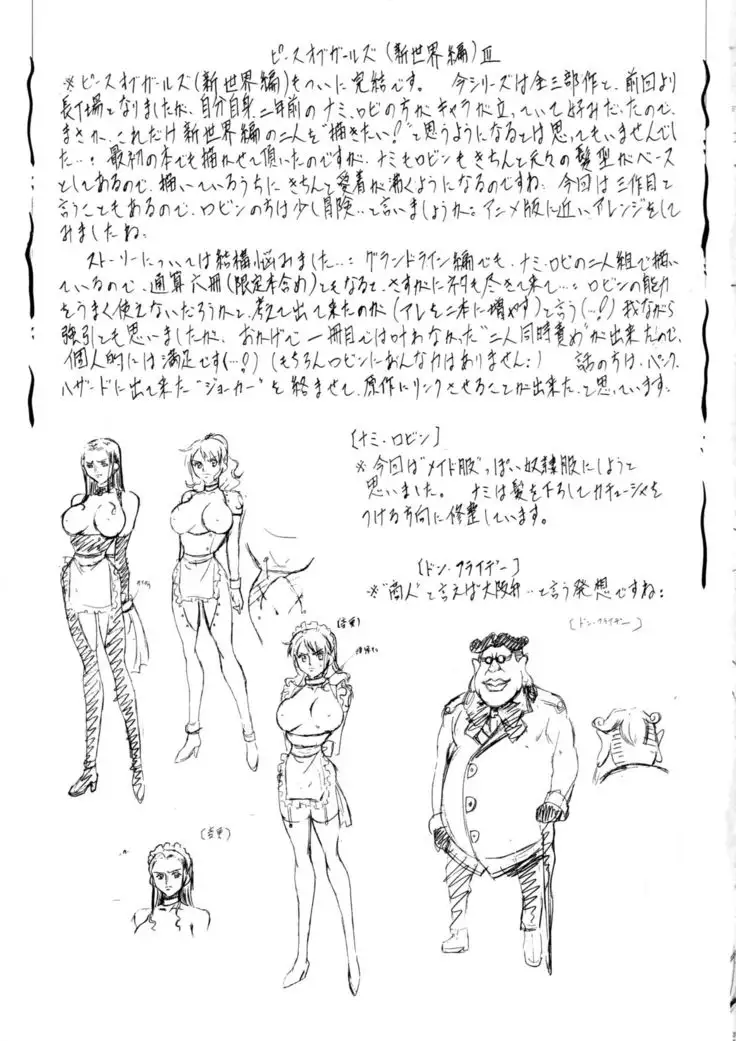 ピースオブガールズ(新世界編)Ⅲ
※ピースオブガールズ(新世界編)もついに完結です。 今シリーズは全三部作と、前回より
長丁場となりましたが、自分自身、二年前のナミ、ロビの方がキャラが立っていて好みだったので、
まさか、これだけ新世界編の二人を“描きたい!”と思うようになるとは思ってもいませんでし
た…: 最初の本でも描かせて頂いたのですが、ナミもロビンもきちんと元々の髪型がベース
としてあるので、描いているうちにきちんと愛着が沸くようになるのですね: 今回は三作目と
言うこともあるので、ロビンの方は少し冒険…と言いましょうか: アニメ版に近いアレンジをして
みましたね:
ストーリーについては結構悩みました…: グランドライン編でも、ナミ、ロビの二人組で描い
ているので、通算六冊(限定本含め)ともなると、さすがにネタも尽きて来て…: ロビンの能力
をうまく使えないだろうかと、考えて出て来たのが(アレを二本に増やす)と言う(…!)我ながら
強引とも思いましたが、おかげで一冊目では叶わなかった“二人同時責め”が出来たので、
個人的には満足です(…!)(もちろんロビンにあんな力はありません:) 話の方は、パンク
ハザードに出て来た“ジョーカー”を絡ませて、原作にリンクさせることが出来た、と思っています。
[ナミ・ロビン]
※今回は“メイド服”っぽい奴隷服にしようと
思いました。 ナミは髪を下ろしてカチューシャを
つける方向に修整しています。
[ドン・フライデー]
※“商人”と言えば大阪弁…と言う発想ですね:
[ドン・フライデー]
(変更)
(変更)